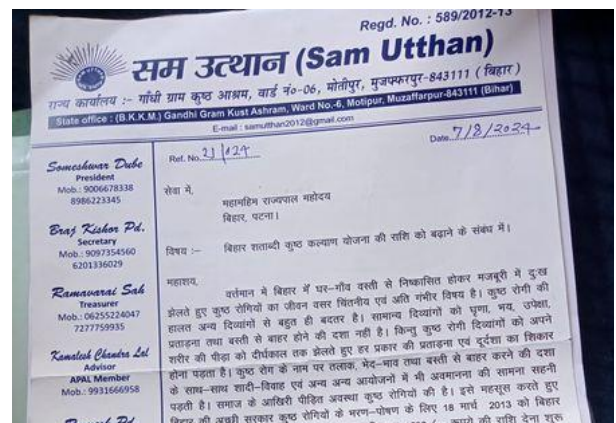 Regd. No. : 589/2012-13
सम उत्थान (Sam Utthan)
राज्य कार्यालय :- गाँधी ग्राम कुष्ठ आश्रम, वार्ड नं०-06, मोतीपुर, मुजफ्फरपुर-843111 (बिहार)
State office : (B.K.K.M.) Gandhi Gram Kust Ashram, Ward No.-6, Motipur, Muzaffarpur-843111 (Bihar)
E-mail : samutthan2012@gmail.com
Ref. No. 21/024
Date 7/8/2024
Someshwar Dube
President
Mob.: 9006678338
8986223345
Braj Kishor Pd.
Secretary
Mob.: 9097354560
6201336029
Ramavarai Sah
Treasurer
Mob.: 06255224047
7277759935
Kamalesh Chandra Lal
Advisor
APAL Member
Mob.: 9931666958
Pd.
सेवा में,
महामहिम राज्यपाल महोदय
बिहार, पटना।
विषय :- बिहार शताब्दी कुष्ठ कल्याण योजना की राशि को बढ़ाने के संबंध में।
महाशय,
वर्तमान में बिहार में घर-गाँव वस्ती से निष्कासित होकर मजबूरी में दुःख
झेलते हुए कुष्ठ रोगियों का जीवन वसर चिंतनीय एवं अति गंभीर विषय है। कुष्ठ रोगी की
हालत अन्य दिव्यांगों से बहुत ही बदतर है। सामान्य दिव्यांगों को घृणा, भय, उपेक्षा,
प्रताड़ना तथा बस्ती से बाहर होने की दशा नही है। किन्तु कुष्ठ रोगी दिव्यांगों को अपने
शरीर की पीड़ा को दीर्घकाल तक झेलते हुए हर प्रकार की प्रताड़ना एवं दूर्दशा का शिकार
होना पड़ता है। कुष्ठ रोग के नाम पर तलाक, भेद-भाव तथा बस्ती से बाहर करने की दशा
के साथ-साथ शादी-विवाह एवं अन्य अन्य आयोजनों में भी अवमानना की सामना सहनी
पड़ती है। समाज के आखिरी पीड़ित अवस्था कुष्ठ रोगियों की है। इसे महसूस करते हुए
बिहार की अच्छी सरकार कुष्ठ रोगियों के भरण-पोषण के लिए 18 मार्च 2013 को बिहार
रूपये की राशि देना शुरू